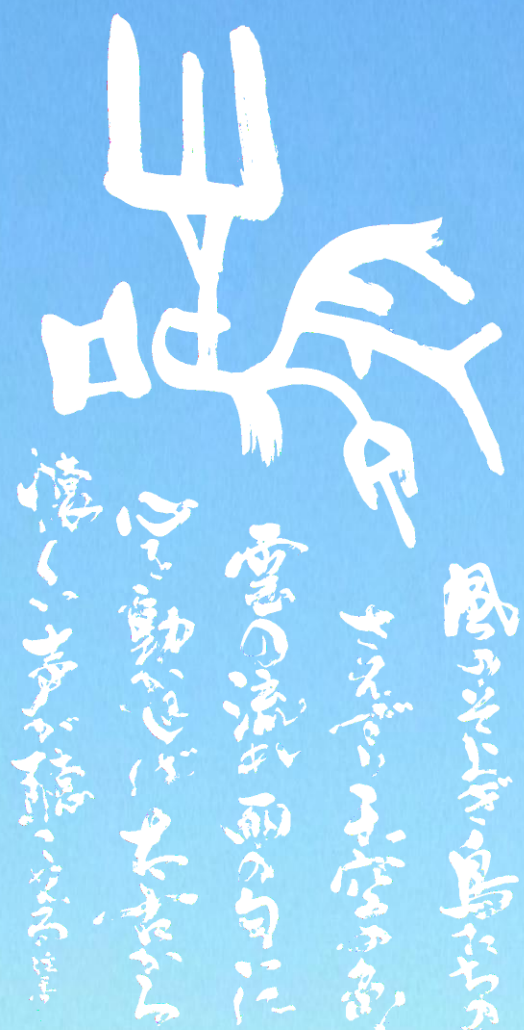 風のそよぎ 鳥たちの
さえずり 天空の彩
雲の流れ 雨の匂いに
心を動かせば 太古から
懐しい声が聴こえる